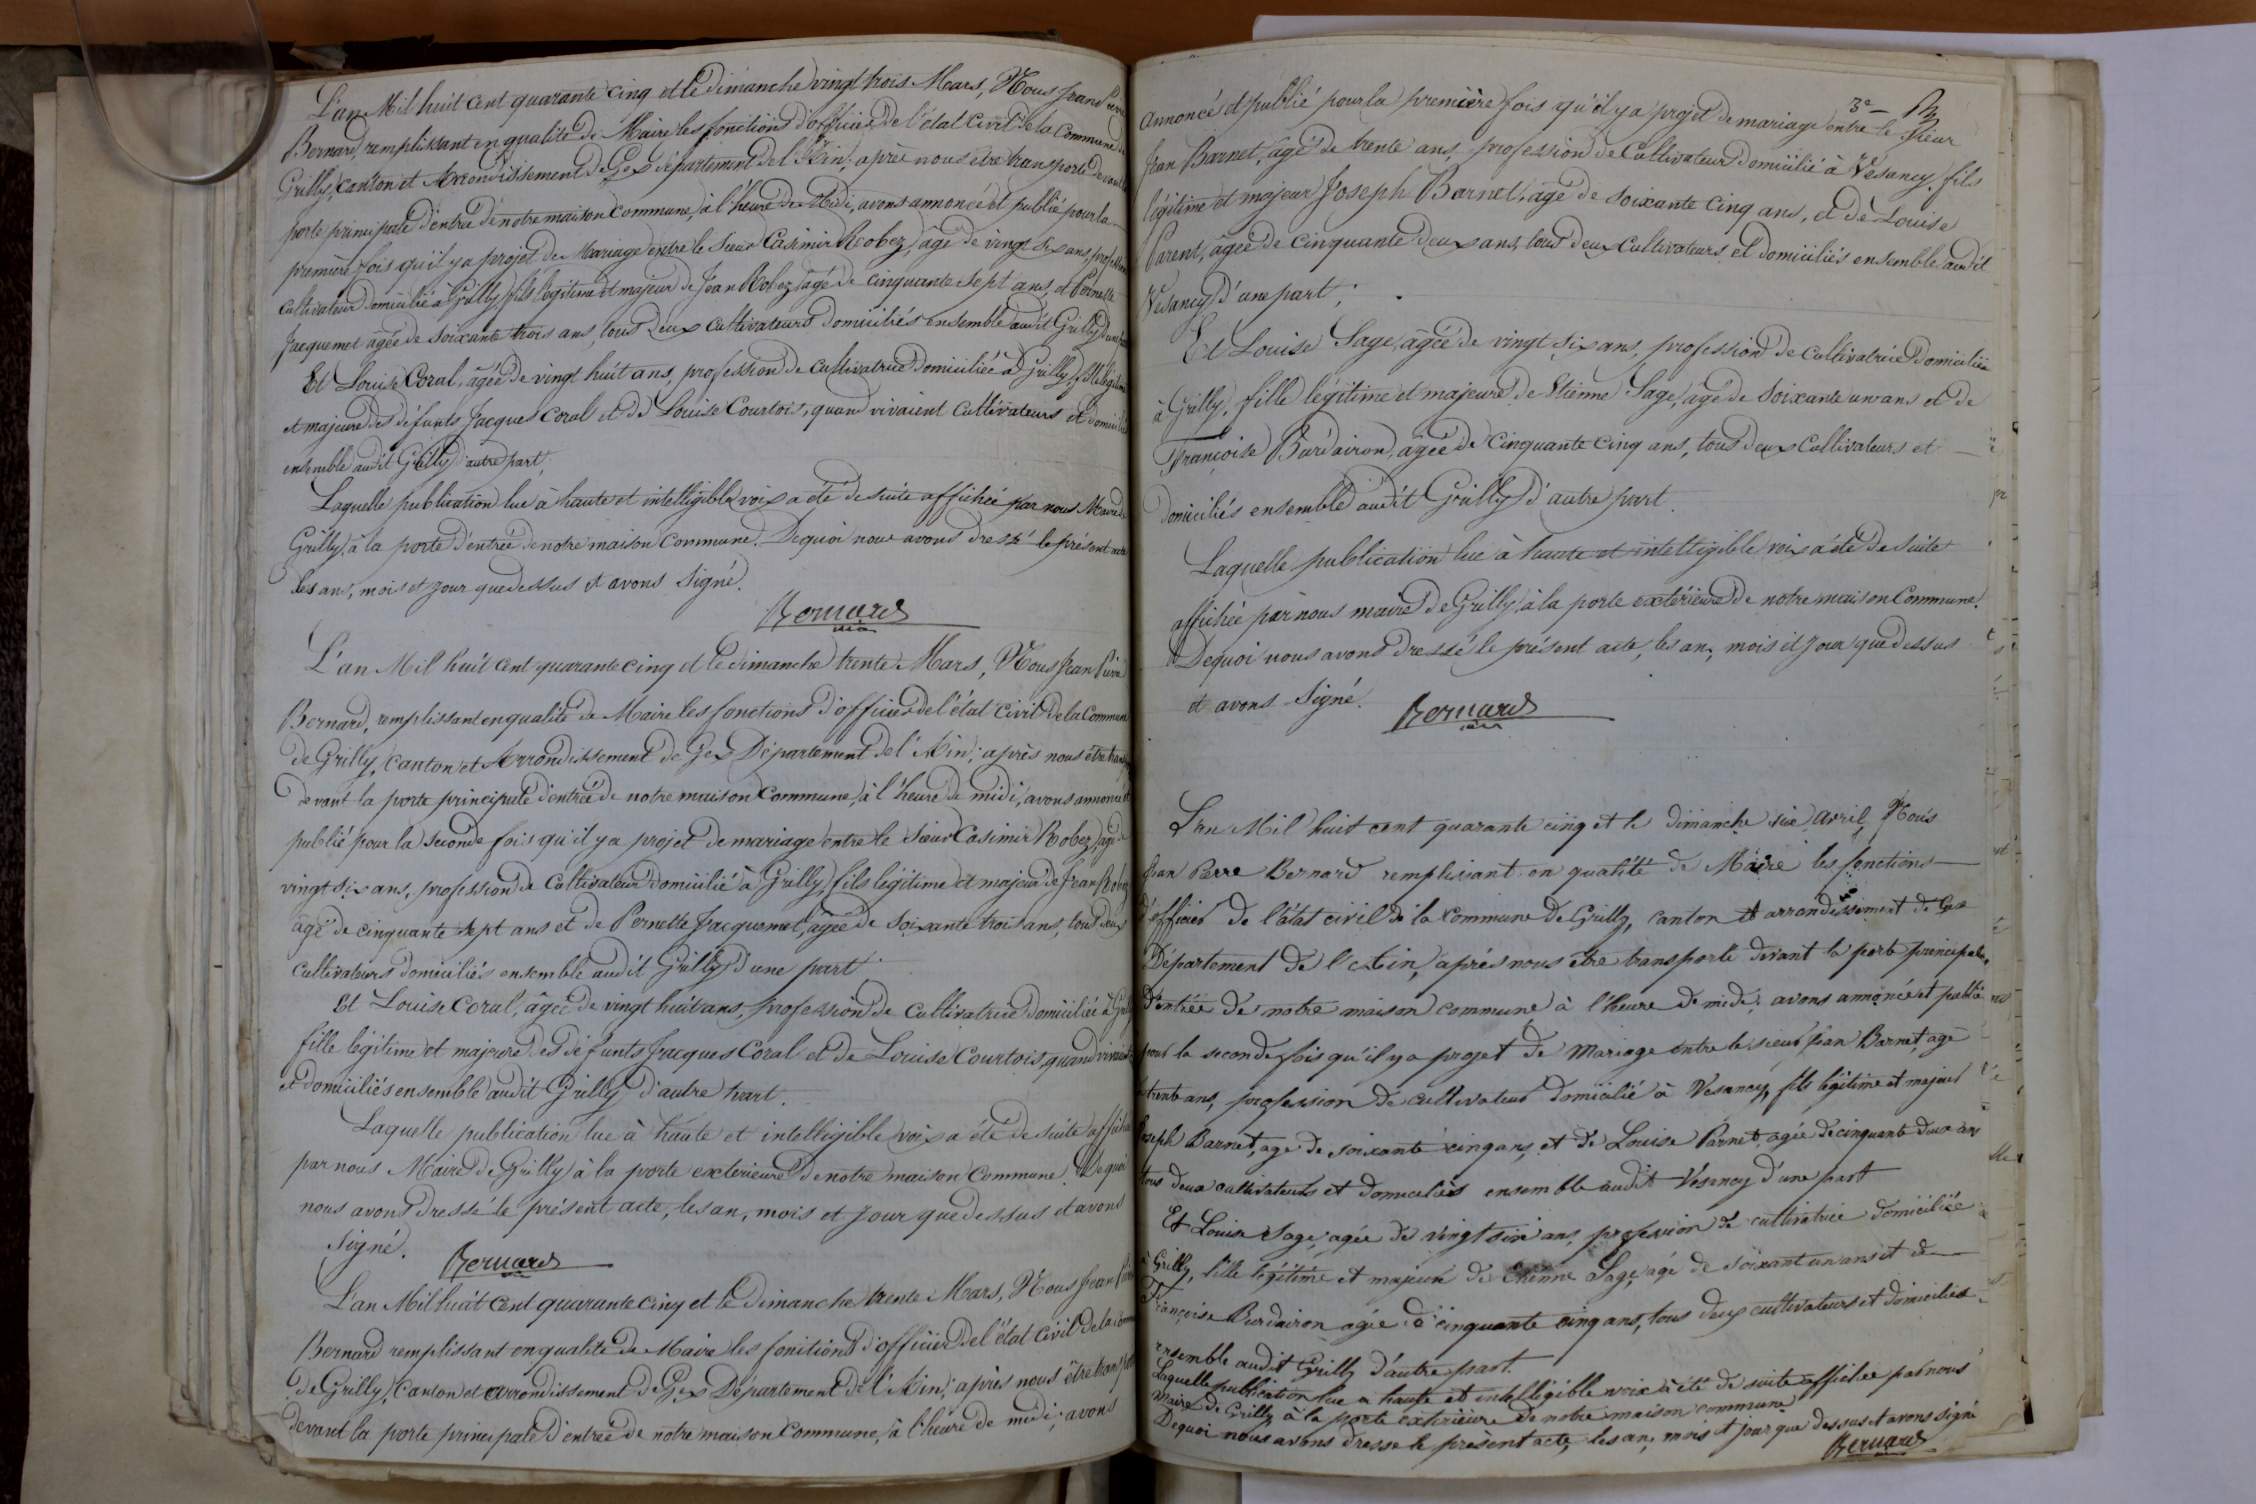 L'an Mil huit cent quarante cinq et le dimanche vingt trois Mars, Nous Jean
Bernard, remplissant en qualité de Maire les fonctions d'officier de l'état civil de la Commune de
Grilly, canton et Arrondissement de Gex département de l'Ain; après nous être transporté devant la
porte principale d'entrée de notre maison commune, à l'heure de Midi, avons annoncé et publié pour la
première fois qu'il y a projet de Mariage entre le Sieur Casimir Robez, âgé de vingt six ans, profession
cultivateur domicilié à Grilly, fils légitime et majeur de Jean Robez âgé de cinquante sept ans, et Pernette
Jacquemet âgée de soixante trois ans, tous deux cultivateurs domiciliés ensemble audit Grilly d'une
Et Louise Coral, âgée de vingt huit ans, profession de cultivatrice domiciliée à Grilly, fille légitime
et majeure des défunts Jacques Coral et de Louise Courtois, quand vivaient Cultivateurs et domiciliés
ensemble audit Grilly d'autre part,
Laquelle publication lue à haute et intelligible voix a été de suite affichée par nous Maire de
Grilly, à la porte d'entrée de notre maison Commune. De quoi nous avons dressé le présent acte
les ans, mois et jour que dessus et avons signé.
Bernard
L'an Mil huit cent quarante cinq et le dimanche trente Mars, Nous Jean Pierre
Bernard, remplissant en qualité de Maire les fonctions d'officier de l'état civil de la Commune
de Grilly, canton et Arrondissement de Gex Département de l'Ain; après nous être
devant la porte principale d'entrée de notre maison Commune, à l'heure de midi, avons annoncé et
publié pour la seconde fois qu'il y a projet de mariage entre le Sieur Casimir Robez, âgé
vingt six ans, profession de Cultivateur domicilié à Grilly, fils légitime et majeur de Jean Robez
âgé de cinquante sept ans et de Pernette Jacquemet, âgée de soixante trois ans, tous deux
cultivateurs domiciliés ensemble audit Grilly d'une part
Et Louise Coral, âgée de vingt huit ans, profession de Cultivatrice domiciliée à
fille légitime et majeure des défunts Jacques Coral et de Louise Courtois, quand vivaient
et domiciliés ensemble audit Grilly d'autre part.
Laquelle publication lue à haute et intelligible voix a été de suite affichée
par nous Maire de Grilly à la porte extérieure de notre maison Commune. De quoi
nous avons dressé le présent acte, les an, mois et jour que dessus et avons
signé.
Bernard
L'an Mil huit cent quarante cinq et le dimanche trente Mars, Nous Jean
Bernard remplissant en qualité de Maire les fonctions d'officier de l'état civil de la
de Grilly, Canton et arrondissement de Gex Département de l'Ain; après nous être
devant la porte principale d'entrée de notre maison Commune, à l'heure de midi; avons
3e
annoncé et publié pour la première fois qu'il y a projet de mariage entre le Sieur
Jean Barnet, âgé de trente ans, profession de Cultivateur domicilié à Vésancy, fils
légitime et majeur Joseph Barnet, âgé de soixante cinq ans, et de Louise
Parent, âgée de cinquante deux ans, tous deux Cultivateurs et domiciliés ensemble audit
Vésancy d'une part;
Et Louise Sage, âgée de vingt six ans, profession de Cultivatrice domiciliée
à Grilly, fille légitime et majeure de Etienne Sage, âgé de soixante un ans et de
Françoise Burdairon, âgée de cinquante cinq ans, tous deux Cultivateurs et
domiciliés ensemble audit Grilly d'autre part.
Laquelle publication lue à haute et intelligible voix a été de suite
affichée par nous maire de Grilly, à la porte extérieure de notre maison Commune.
De quoi nous avons dressé le présent acte, les an, mois et jour que dessus
et avons signé.
Bernard
L'an Mil huit cent quarante cinq et le dimanche six avril, Nous
Jean Pierre Bernard remplissant en qualité de Maire les fonctions
d'officier de l'état civil de la commune de Grilly, canton et arrondissement de Gex
Département de l'Ain, après nous être transporté devant la porte principale
d'entrée de notre maison commune à l'heure de midi; avons annoncé et publié
pour la seconde fois qu'il y a projet de Mariage entre le sieur Jean Barnet, age
trente ans, profession de cultivateur domicilié à Vésancy, fils légitime et majeur
Joseph Barnet, age de soixante cinq ans, et de Louise Parnet agée de cinquante deux ans
tous deux cultivateurs et domiciliés ensemble audit Vésancy d'une part
Et Louise Sage, agée de vingt six ans, profession de cultivatrice domiciliée
à Grilly, fille légitime et majeure de Etienne Sage, agé de soixante un ans et de
Françoise Burdairon agée de cinquante cinq ans, tous deux cultivateurs et domiciliés
ensemble audit Grilly d'autre part.
Laquelle publication lue a haute et intelligible voix a été de suite affichée par nous
Maire de Grilly à la porte extérieure de notre maison commune
De quoi nous avons dressé le présent acte, les an, mois et jour que dessus et avons signé
Bernard